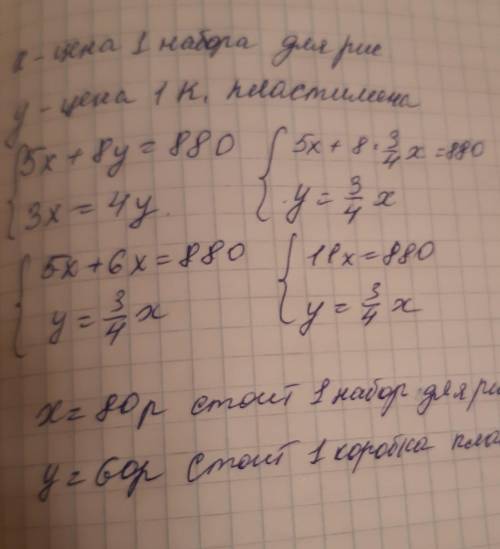 x - цена 1 набора для рис
y - цена 1 к. пластилина
5x + 8y = 880
3x = 4y.
5x + 8 · 3/4 x = 880
y = 3/4 x
5x + 6x = 880
y = 3/4 x
11x = 880
y = 3/4 x
x = 80р стоит 1 набор для ри
y = 60р стоит 1 коробка пла